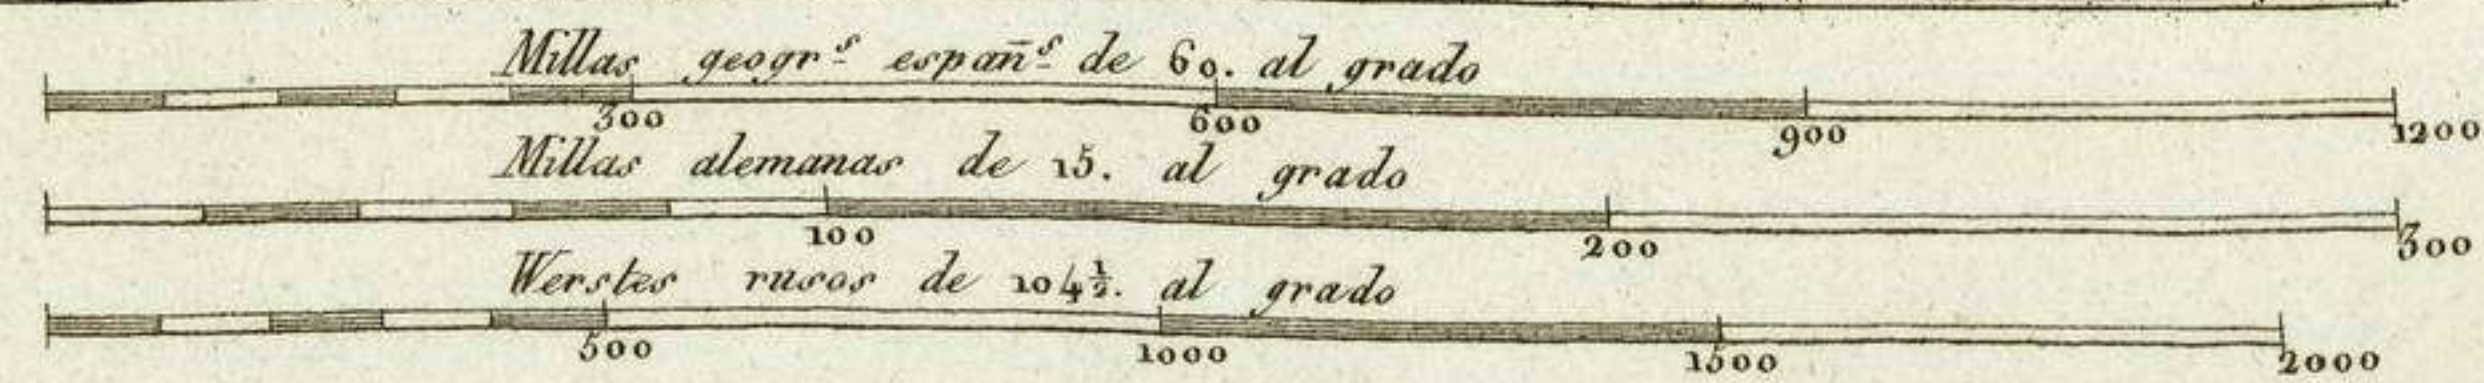 Millas geogr.ˢ españ.ˢ de 60. al grado
300 600 900 1200
Millas alemanas de 15. al grado
100 200 300
Werstes rusos de 104½. al grado
500 1000 1500 2000